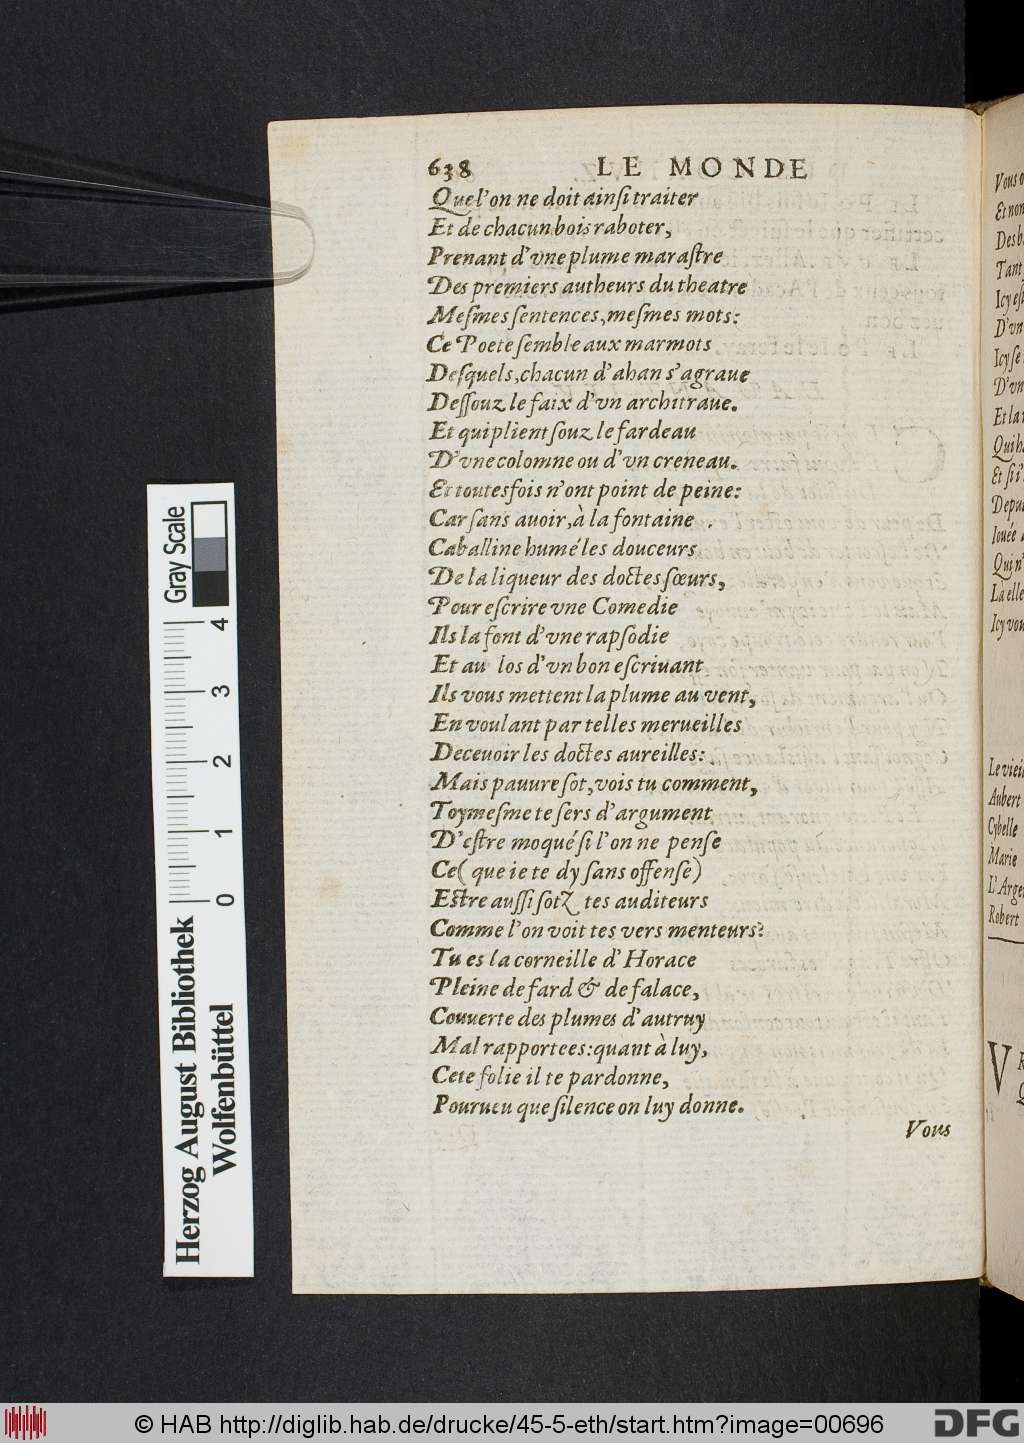 638 LE MONDE
Que l'on ne doit ainſi traiter
Et de chacun bois raboter,
Prenant d'vne plume maraſtre
Des premiers autheurs du theatre
Meſmes ſentences, meſmes mots:
Ce Poete ſemble aux marmots
Deſquels, chacun d'ahan s'agraue
Deſſouz le faix d'vn architraue.
Et qui plient ſouz le fardeau
D'vne colomne ou d'vn creneau.
Et toutesfois n'ont point de peine:
Car ſans auoir, à la fontaine
Caballine humé les douceurs
De la liqueur des doctes ſœurs,
Pour eſcrire vne Comedie
Ils la font d'vne rapſodie
Et au los d'vn bon eſcriuant
Ils vous mettent la plume au vent,
En voulant par telles merueilles
Deceuoir les doctes aureilles:
Mais pauure ſot, vois tu comment,
Toymeſme te ſers d'argument
D'eſtre moqué ſi l'on ne penſe
Ce ( que ie te dy ſans offenſe)
Eſtre auſſi ſotz tes auditeurs
Comme l'on voit tes vers menteurs?
Tu es la corneille d'Horace
Pleine de fard & de falace,
Couuerte des plumes d'autruy
Mal rapportees: quant à luy,
Cete folie il te pardonne,
Pourueu que ſilence on luy donne.
Vous
Vous
Et non
Tant
D'vn
Icy ſe
D'vn
Et la
Et ſi
Iouée
Là elle
Icy
Aubert
Cybelle
Marie
Robert
V
Gray Scale
0 1 2 3 4
Herzog August Bibliothek
Wolfenbüttel
© HAB http://diglib.hab.de/drucke/45-5-eth/start.htm?image=00696
DFG